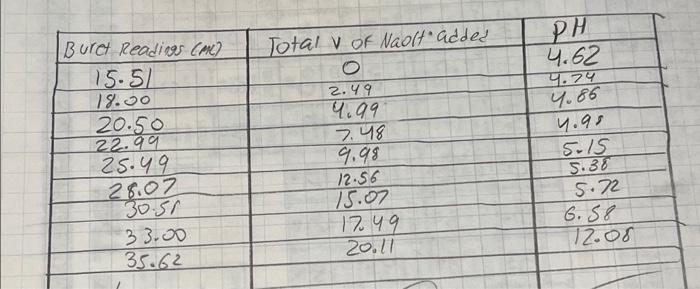 Buret Readings (mL) Total V of NaOH added PH
15.51 0 4.62
18.00 2.49 4.74
20.50 4.99 4.86
22.99 7.48 4.98
25.49 9.98 5.15
28.07 12.56 5.38
30.58 15.07 5.72
33.00 17.49 6.58
35.62 20.11 12.08